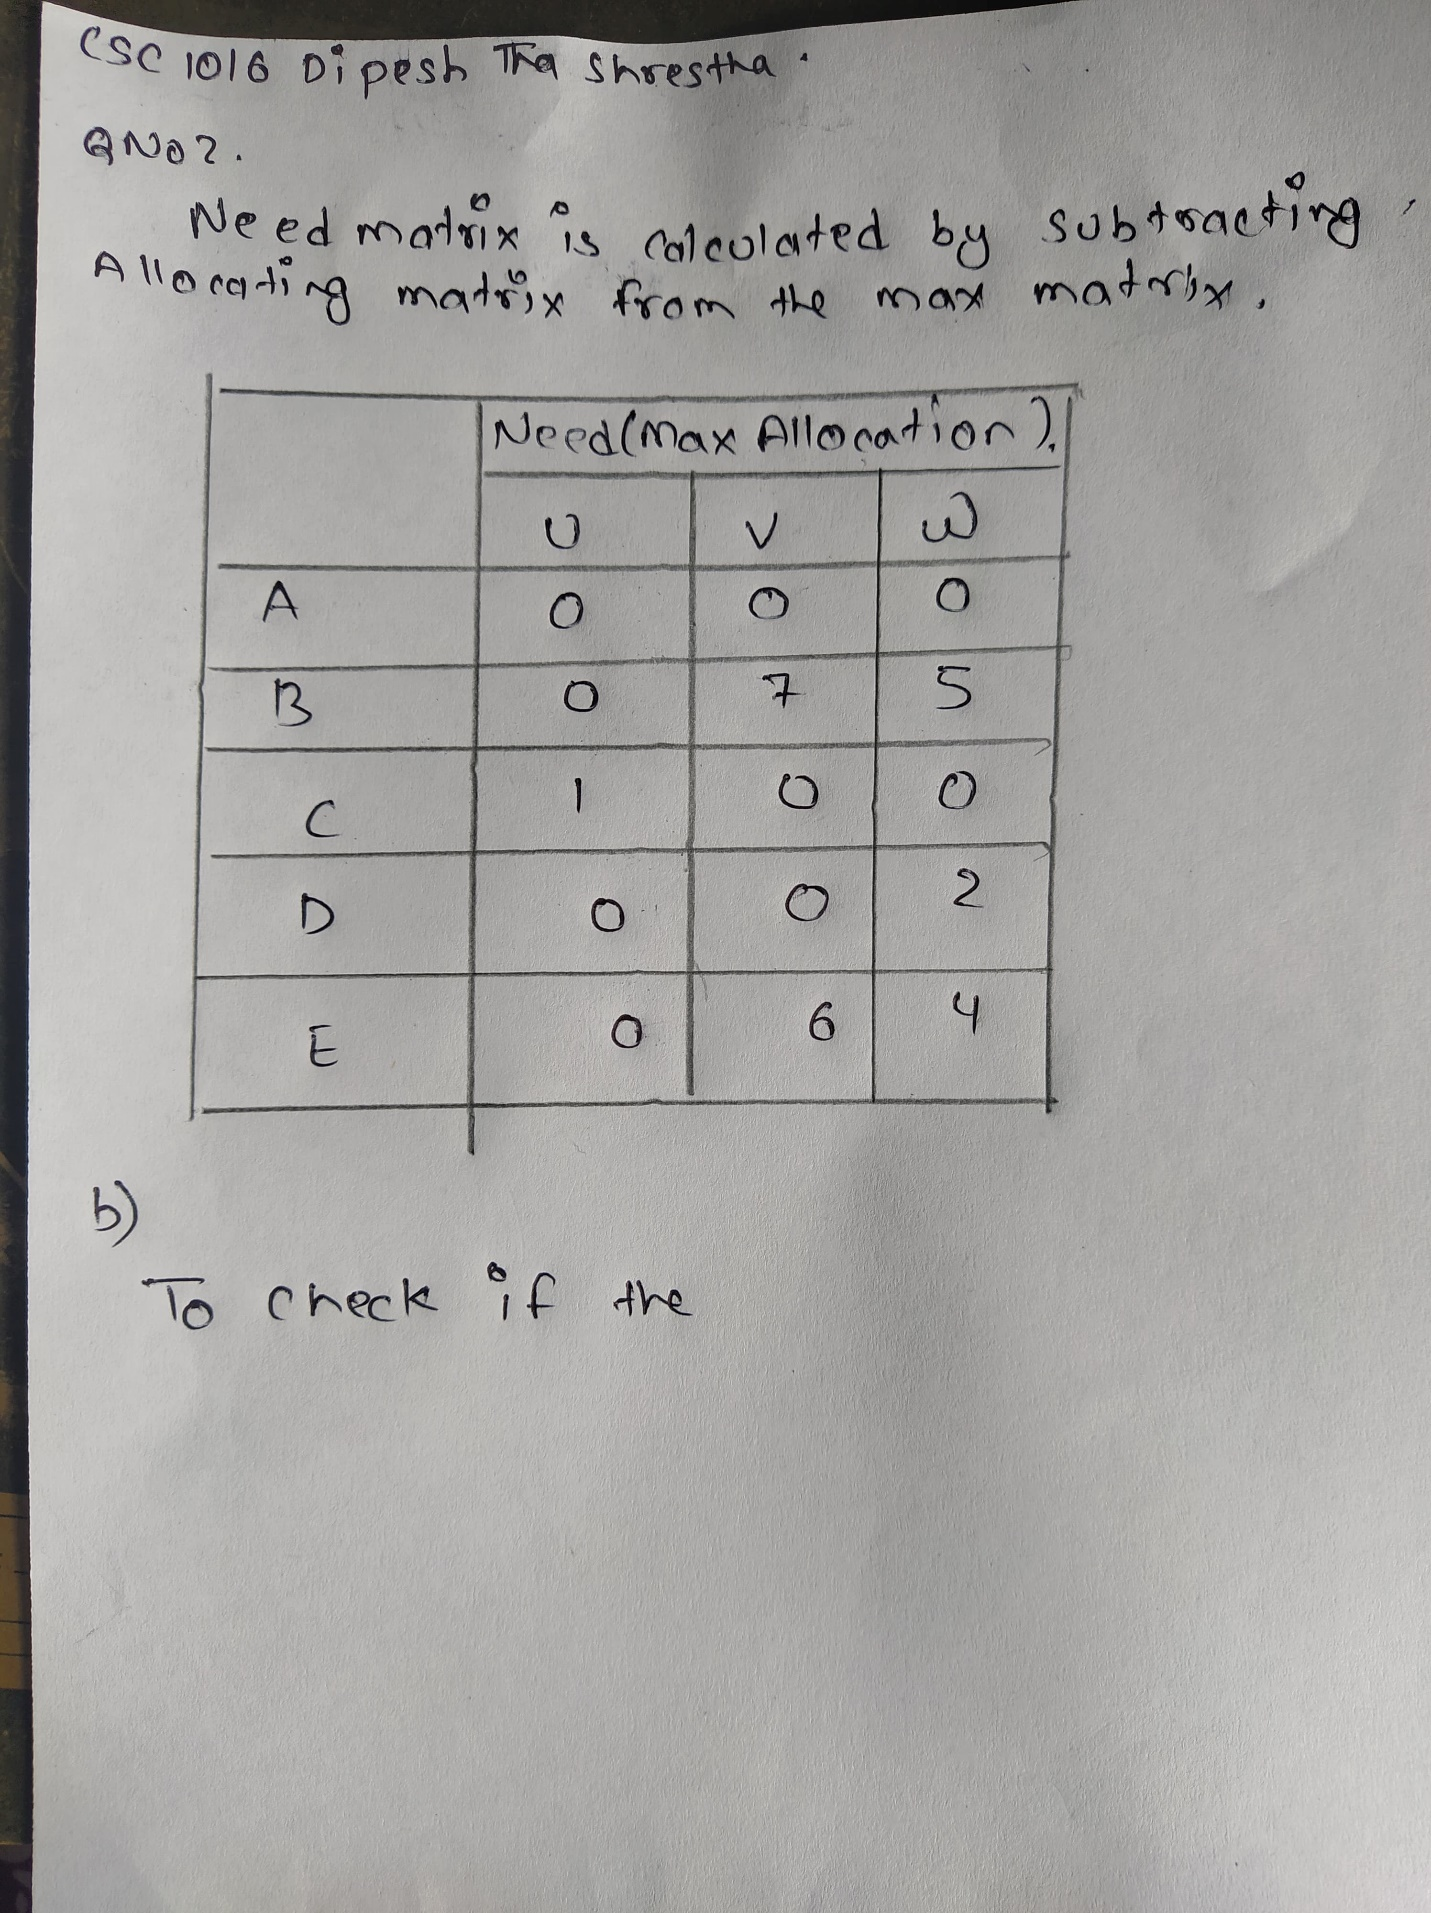 CSC 1016 Dipesh Tha Shrestha.
QNO2.
Need matrix is calculated by subtracting
Allocating matrix from the max matrix.
Need(Max Allocation).
U V W
A 0 0 0
B 0 7 5
C 1 0 0
D 0 0 2
E 0 6 4
b)
To check if the